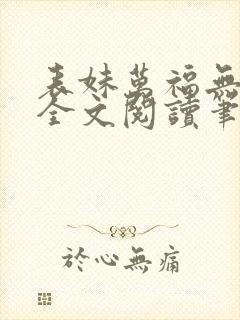 表妹萬福無
全文閱讀筆
於心無痛